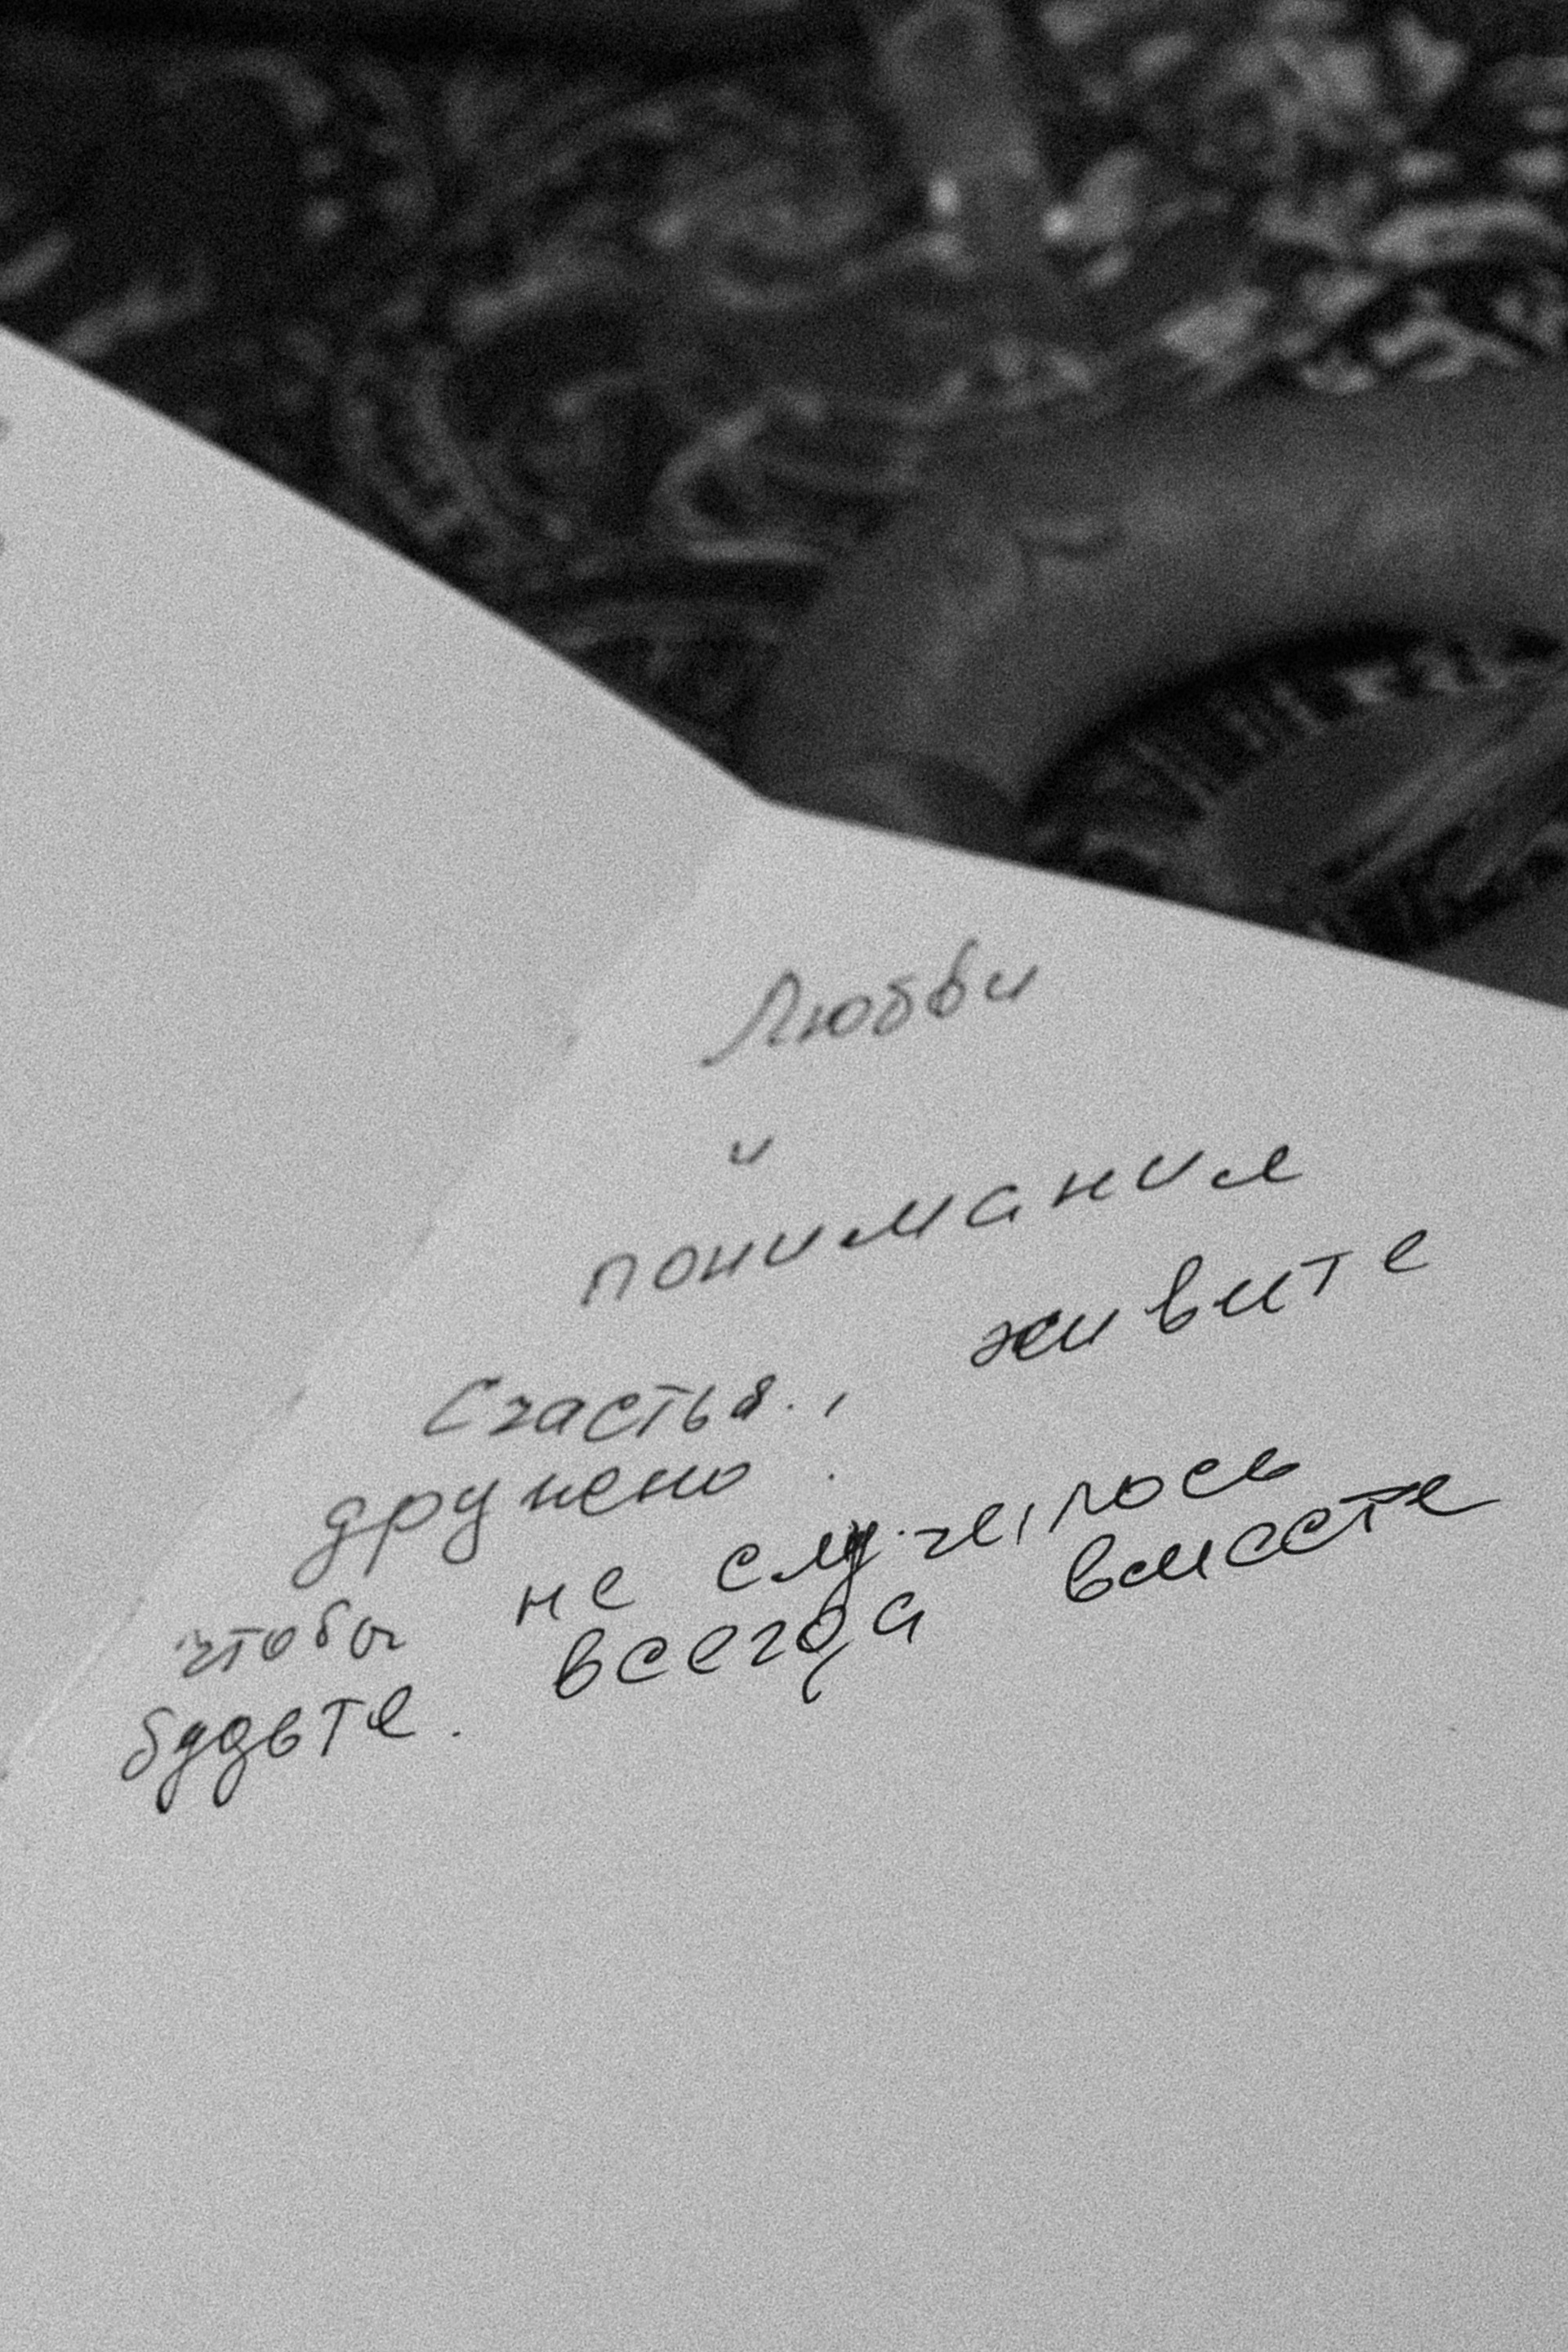 Любви
и
понимания
Счастья., живите
дружно.
чтобы не случилось
будьте. всегда вместе